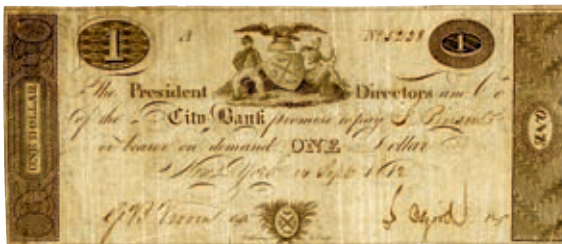 1 A No 5228 1
The President Directors and Co
of the City Bank promise to pay S.
or bearer on demand ONE Dollar
New York 14 Sept 1812
ONE DOLLAR
ONE